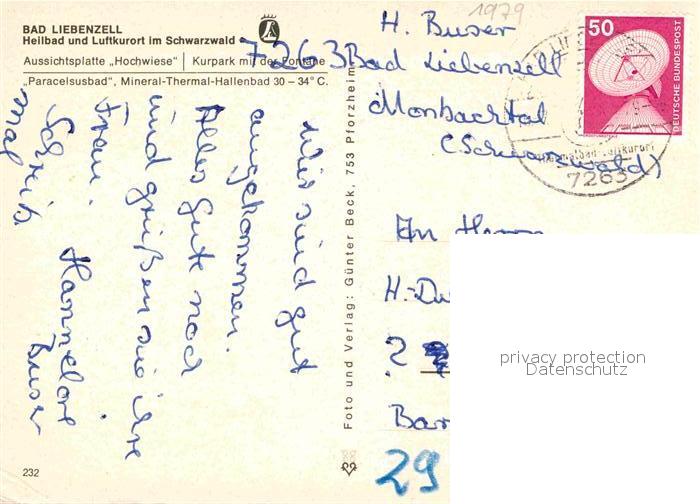 BAD LIEBENZELL
Heilbad und Luftkurort im Schwarzwald
Aussichtsplatte „Hochwiese“ | Kurpark mit der Fontäne
„Paracelsusbad“, Mineral-Thermal-Hallenbad 30–34° C.
wir sind gut
angekommen.
Alles Gute noch
und grüßen sie ihre
Frau.
Schreib. Hannelore
mal Buser
232
Foto und Verlag: Günter Beck, 753 Pforzheim
1979
H. Buser
7263 Bad Liebenzell
Monbachtal
(Schwarzwald)
50
DEUTSCHE BUNDESPOST
7263
An Herrn
H.-D
2
Bar
29
privacy protection
Datenschutz